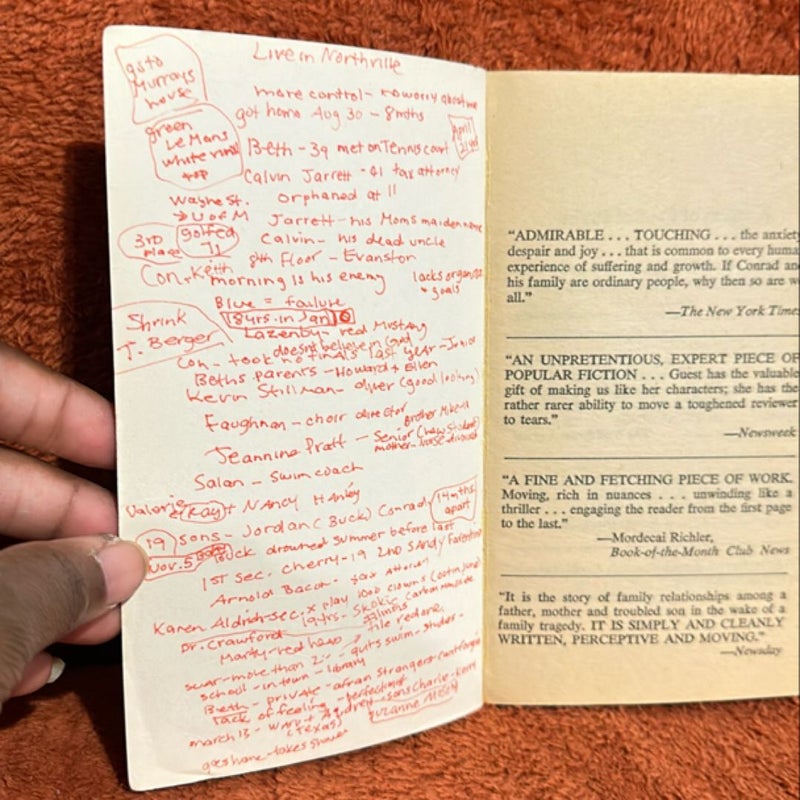 Live in Northville
go to
Murrays
house
more control - no worry about me
got home Aug 30 - 8mths
green
LeMans
white vinyl
top
April
Beth - 39 met on Tennis court
Calvin Jarrett - 41 tax attorney
Wayne St.
orphaned at 11
→ U of M
Jarrett - his Moms maiden name
3rd
place
golfed
71
Calvin - his dead uncle
8th Floor - Evanston
Con. Keith
morning is his enemy
lacks organiz
+ goals
Blue = failure
18yrs. in Jan 10
Shrink
T. Berger
Lazenby - red Mustang
doesnt believe in God
Con - took no finals last year - Junior
Beths parents - Howard + Ellen
Kevin Stillman - diver (good looking)
Faughnan - choir director
brother Mike
Jeannine Pratt - Senior (new student)
mother - Nurse
Salan - swim coach
Valerie
Ray + Nancy Hanley
14mths
apart
19 sons - Jordan (Buck) Conrad
Nov. 5
Buck drowned summer before last
1st sec. cherry - 19 2nd Sandy
Arnold Bacon -
Karen Aldrich - sec. x play 1000 clowns
Skokie
Dr. Crawford
Marty - red head
quits swim - studies -
scar - more than 2
school - in town - library
Beth - private - afraid
lack of feeling - perfectionist
march 13 - Ward + Audrey - sons Charlie - Kerry
(Texas)
Suzanne
goes home - takes shower
“ADMIRABLE . . . TOUCHING . . . the anxiety
despair and joy . . . that is common to every huma
experience of suffering and growth. If Conrad an
his family are ordinary people, why then so are w
all.”
—The New York Times
“AN UNPRETENTIOUS, EXPERT PIECE OF
POPULAR FICTION . . . Guest has the valuable
gift of making us like her characters; she has the
rather rarer ability to move a toughened reviewer
to tears.”
—Newsweek
“A FINE AND FETCHING PIECE OF WORK.
Moving, rich in nuances . . . unwinding like a
thriller . . . engaging the reader from the first page
to the last.”
—Mordecai Richler,
Book-of-the-Month Club News
“It is the story of family relationships among a
father, mother and troubled son in the wake of a
family tragedy. IT IS SIMPLY AND CLEANLY
WRITTEN, PERCEPTIVE AND MOVING.”
—Newsday